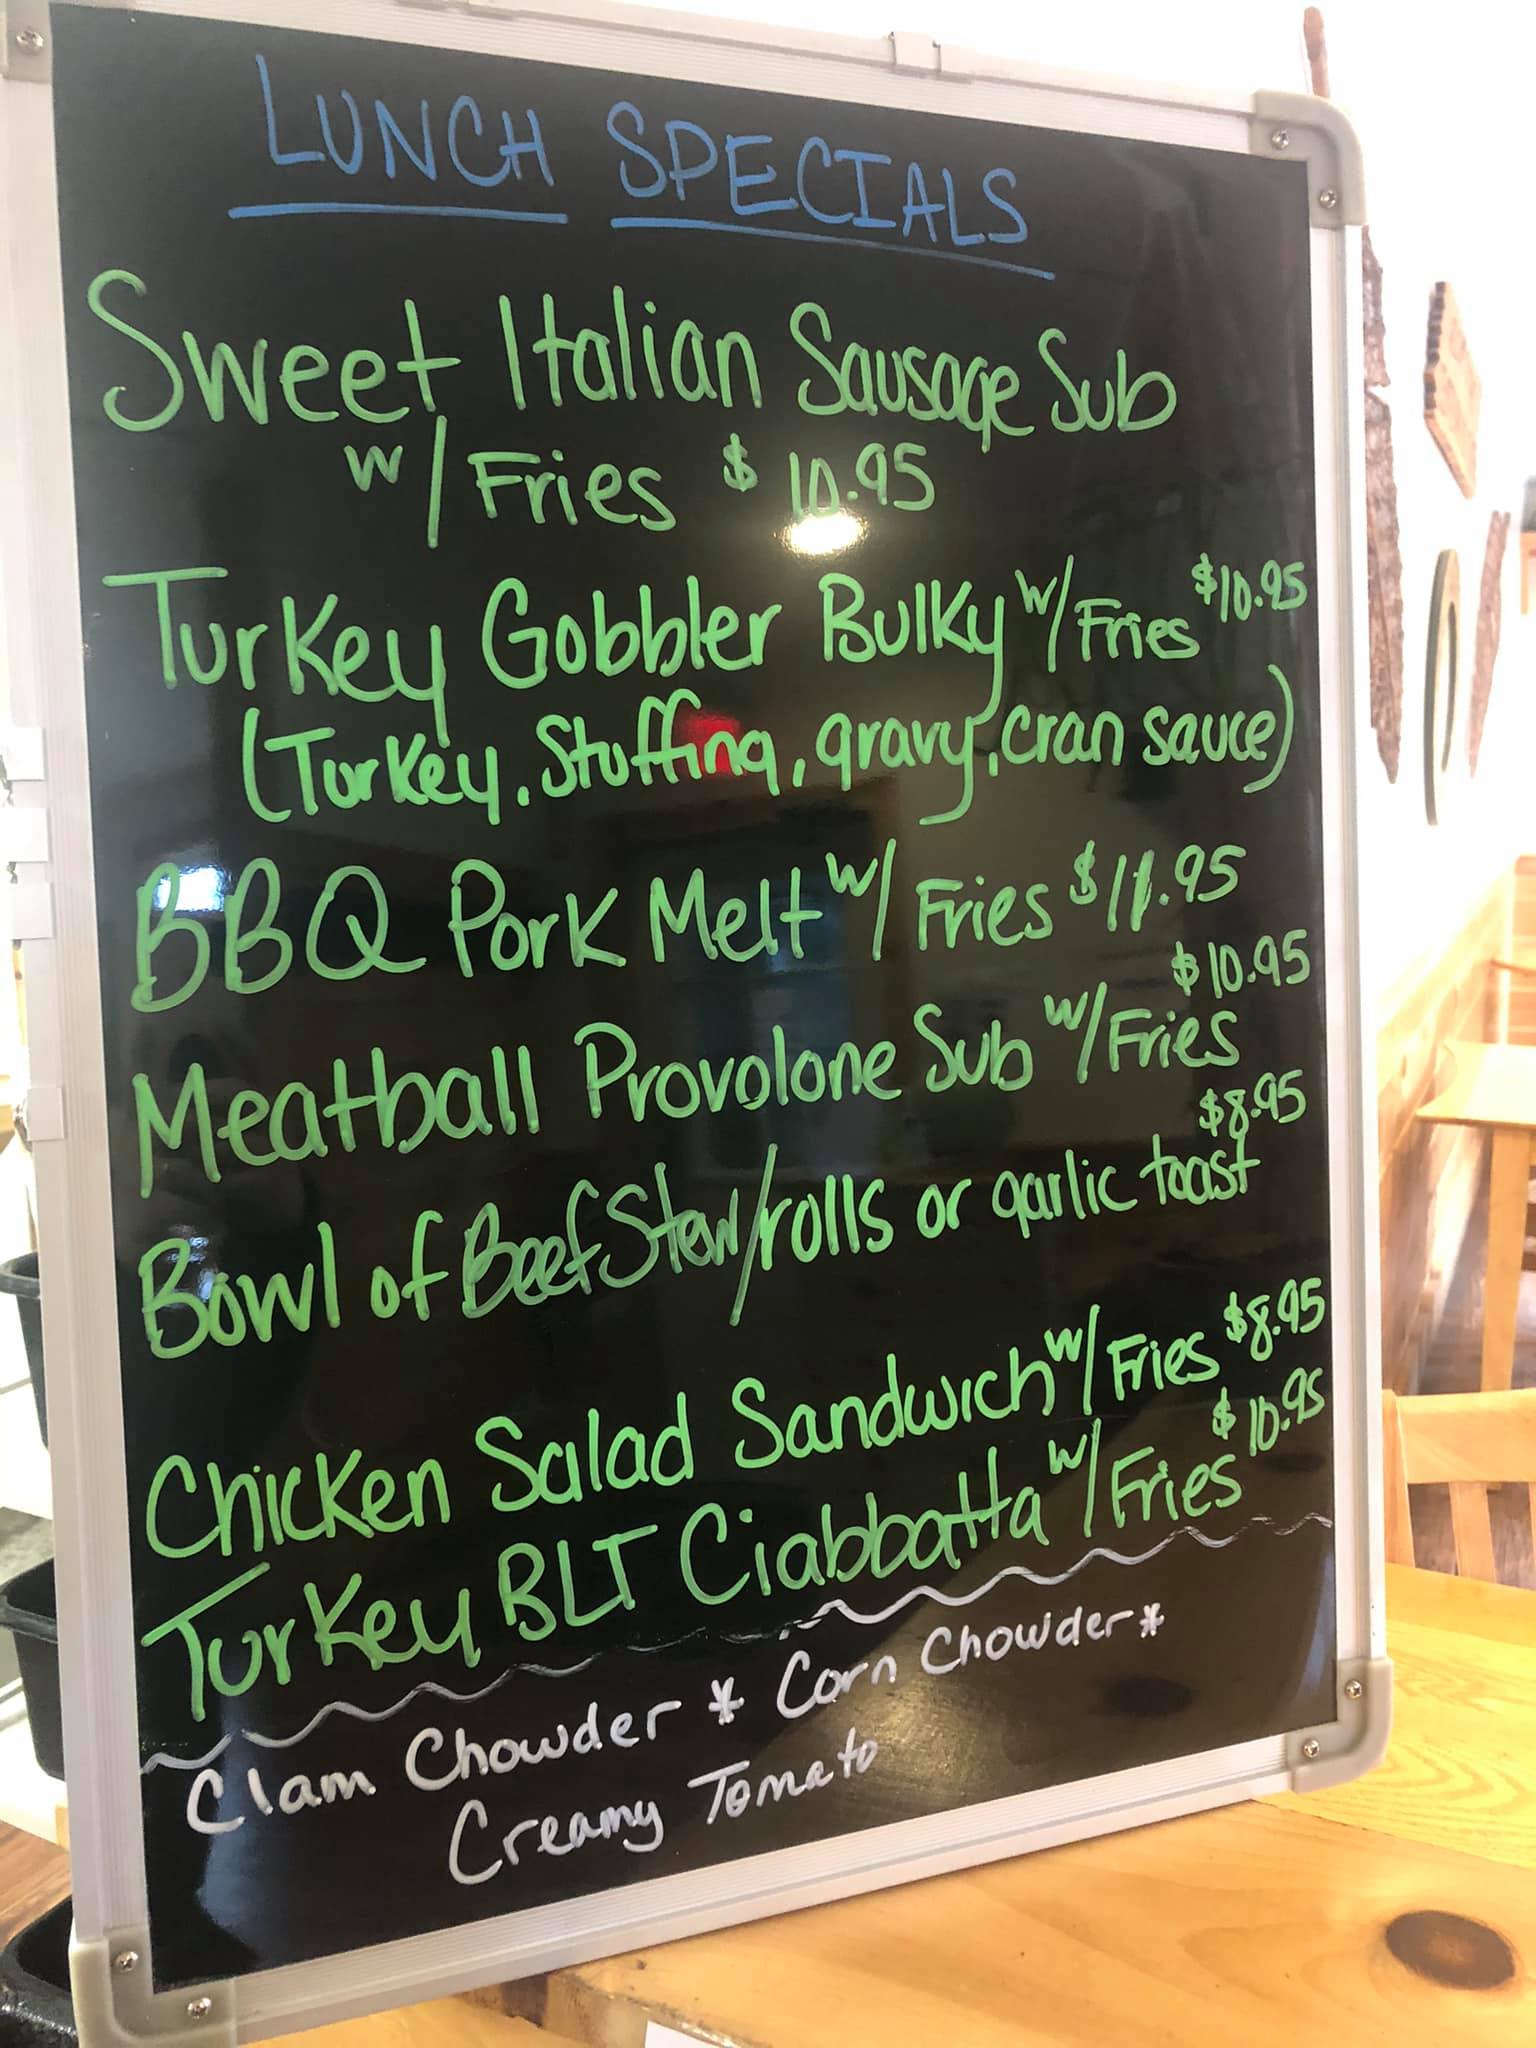 LUNCH SPECIALS
Sweet Italian Sausage Sub
w/ Fries $10.95
Turkey Gobbler Bulky w/ Fries $10.95
(Turkey, Stuffing, gravy, cran sauce)
BBQ Pork Melt w/ Fries $11.95
Meatball Provolone Sub w/ Fries $10.95
Bowl of Beef Stew/rolls or garlic toast $8.95
Chicken Salad Sandwich w/ Fries $8.95
Turkey BLT Ciabbatta w/ Fries $10.95
Clam Chowder * Corn Chowder *
Creamy Tomato